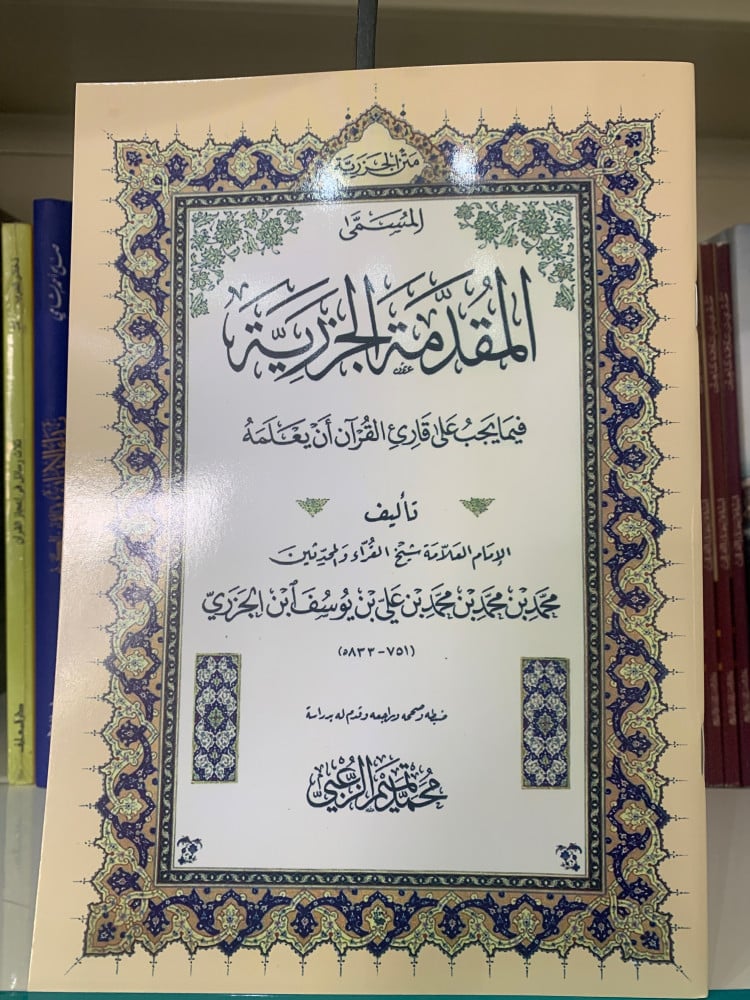 متن الجزرية
المسمى
المقدمة الجزرية
فيما يجب على قارئ القرآن أن يعلمه
تأليف
الإمام العلامة شيخ القراء والمحدثين
محمد بن محمد بن محمد بن علي بن يوسف ابن الجزري
(٧٥١-٨٣٣ه)
ضبطه وصححه وراجعه وقدم له بدراسة
محمد تميم الزعبي
ثلاث رسائل في إعجاز القرآن